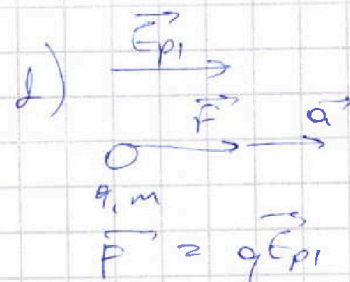 E⃗p1
d)
F⃗ a⃗
q, m
F⃗ = qE⃗p1